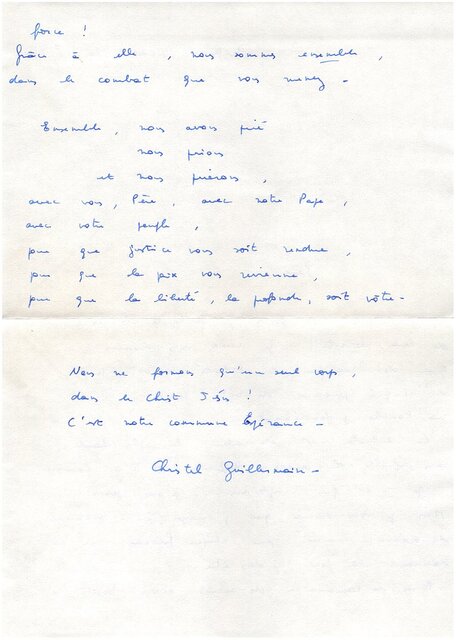 force !
Grâce à elle, nous sommes ensemble,
dans le combat que vous menez -
Ensemble, nous avons prié
nous prions
et nous prierons,
avec vous, Père, avec notre Pape,
avec votre peuple,
pour que justice vous soit rendue,
pour que la paix vous revienne,
pour que la liberté, la profonde, soit vôtre -
Nous ne formons qu'un seul corps,
dans le Christ Jésus !
C'est notre commune Espérance -
Christel Guillermain -